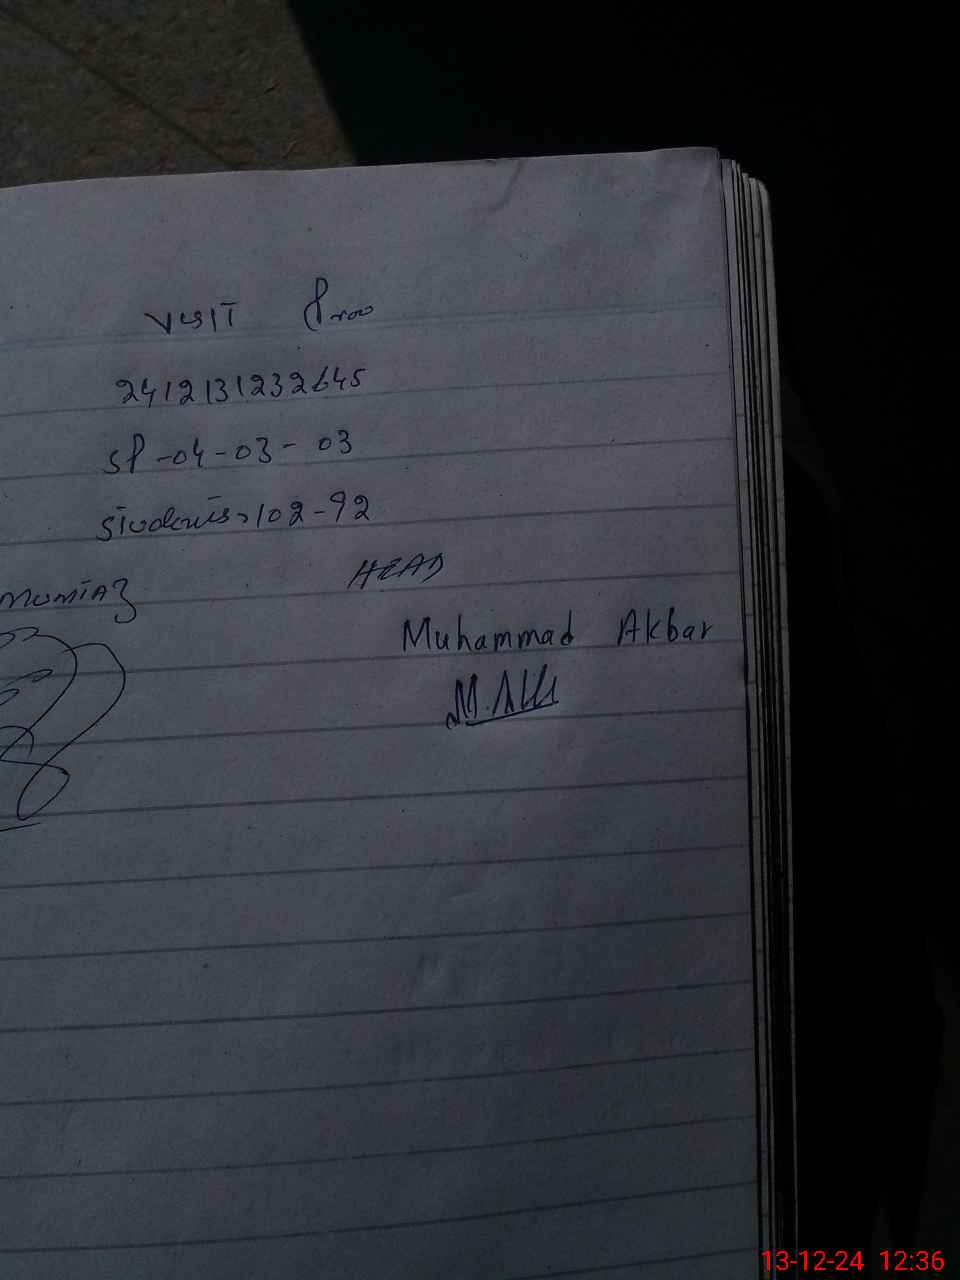 VISIT Proo
2412131232645
SP-04-03-03
Students, 102-92
MUMTAZ HEAD
Muhammad Akbar
13-12-24 12:36